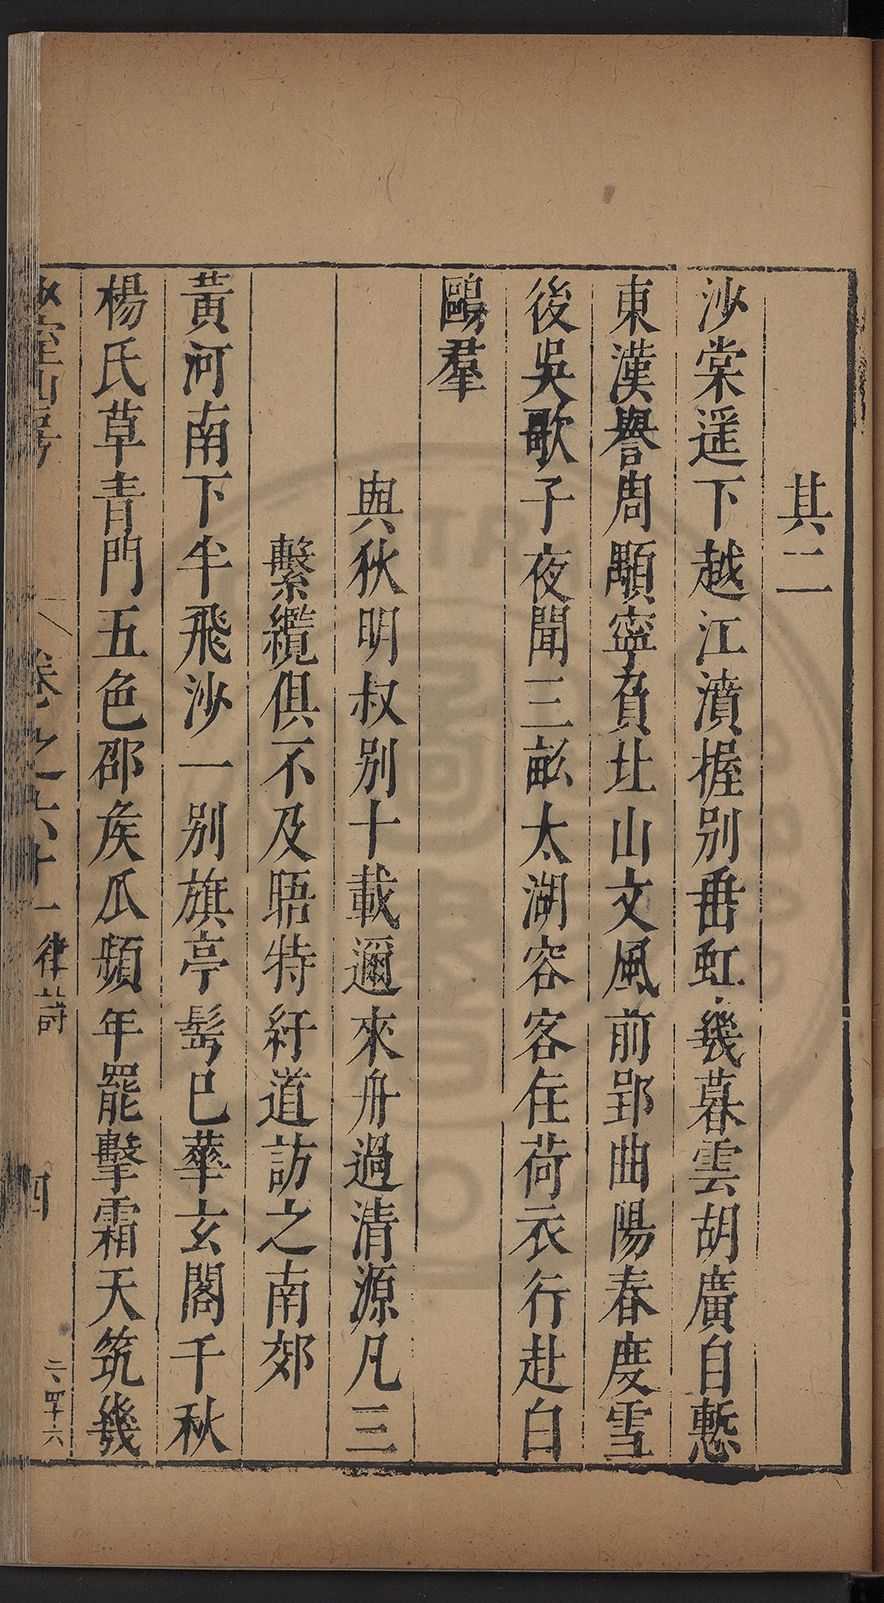 其二
沙棠遥下越江濆握別垂虹幾暮雲胡廣自慙
東漢譽周顒寧負北山文風前郢曲陽春度雪
後吳歌子夜聞三畝太湖容客住荷衣行赴白
鷗羣
與狄明叔別十載邇來舟過清源凡三
繫纜俱不及晤特紆道訪之南郊
黃河南下半飛沙一別旗亭髩已華玄閣千秋
楊氏草青門五色邵矦瓜頻年罷擊霜天筑幾
少室山房
卷之六十一 律詩
四